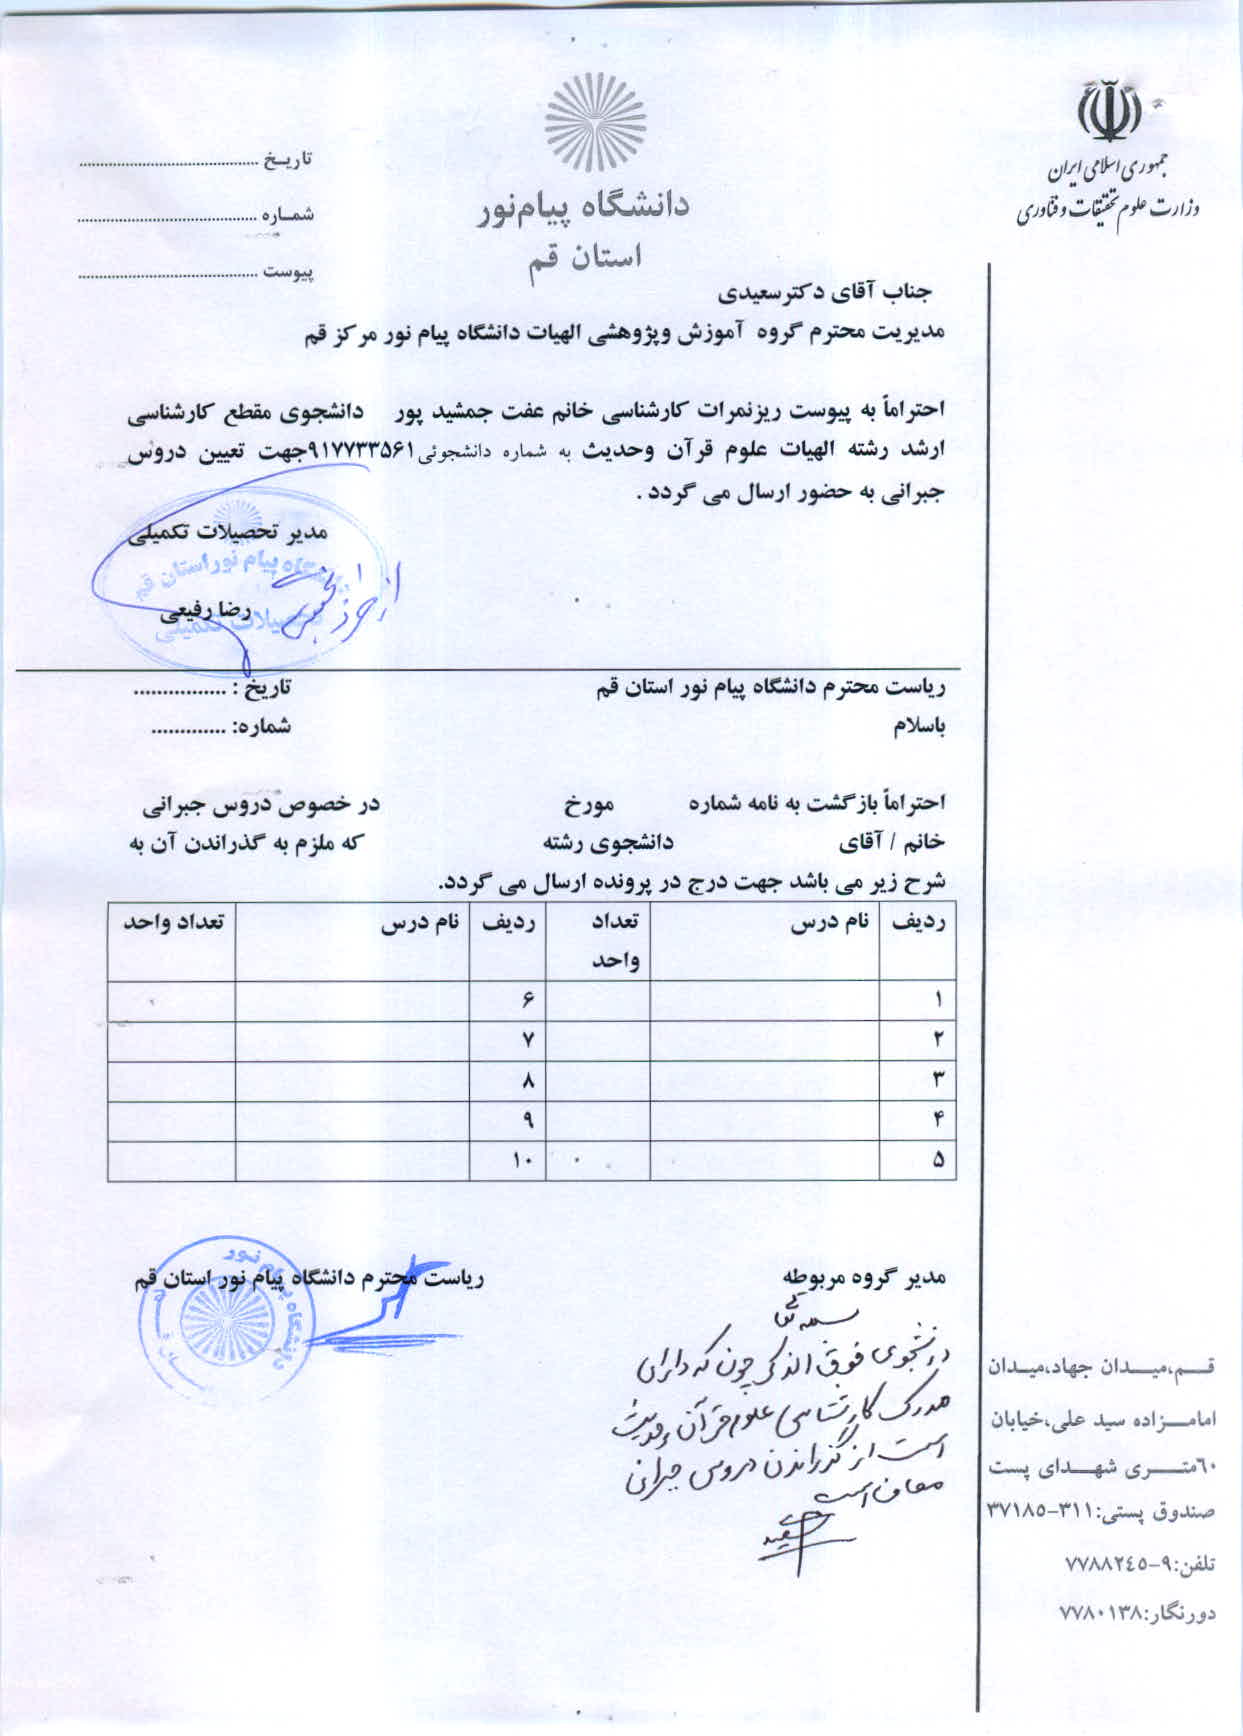 جمهوری اسلامی ایران
وزارت علوم تحقیقات و فناوری
دانشگاه پیام‌نور
استان قم
تاریـخ ..........................................
شمـاره ..........................................
پیوست ..........................................
جناب آقای دکترسعیدی
مدیریت محترم گروه آموزش وپژوهشی الهیات دانشگاه پیام نور مرکز قم
احتراماً به پیوست ریزنمرات کارشناسی خانم عفت جمشید پور دانشجوی مقطع کارشناسی
ارشد رشته الهیات علوم قرآن وحدیث به شماره دانشجوئی ۹۱۷۷۳۳۵۶۱جهت تعیین دروس
جبرانی به حضور ارسال می گردد .
مدیر تحصیلات تکمیلی
دانشگاه پیام نور استان قم
رضا رفیعی
تحصیلات تکمیلی
ریاست محترم دانشگاه پیام نور استان قم تاریخ : ................
باسلام شماره: .............
احتراماً بازگشت به نامه شماره مورخ در خصوص دروس جبرانی
خانم / آقای دانشجوی رشته که ملزم به گذراندن آن به
شرح زیر می باشد جهت درج در پرونده ارسال می گردد.
ردیف نام درس تعداد واحد ردیف نام درس تعداد واحد
۱ ۶
۲ ۷
۳ ۸
۴ ۹
۵ ۱۰
مدیر گروه مربوطه ریاست محترم دانشگاه پیام نور استان قم
دانشگاه پیام نور
بسمه تعالی
دانشجوی فوق الذکر چون که دارای
مدرک کارشناسی علوم قرآن و حدیث
است از گذراندن دروس جبرانی
معاف است
سعیدی
قـــم،میـــدان جهاد،میـدان
امامـــزاده سید علی،خیابان
٦٠متـــری شهـــدای پست
صندوق پستی:۳۱۱-۳۷۱۸۵
تلفن:۹-۷۷۸۸۲٤٥
دورنگار:۷۷۸۰۱۳۸